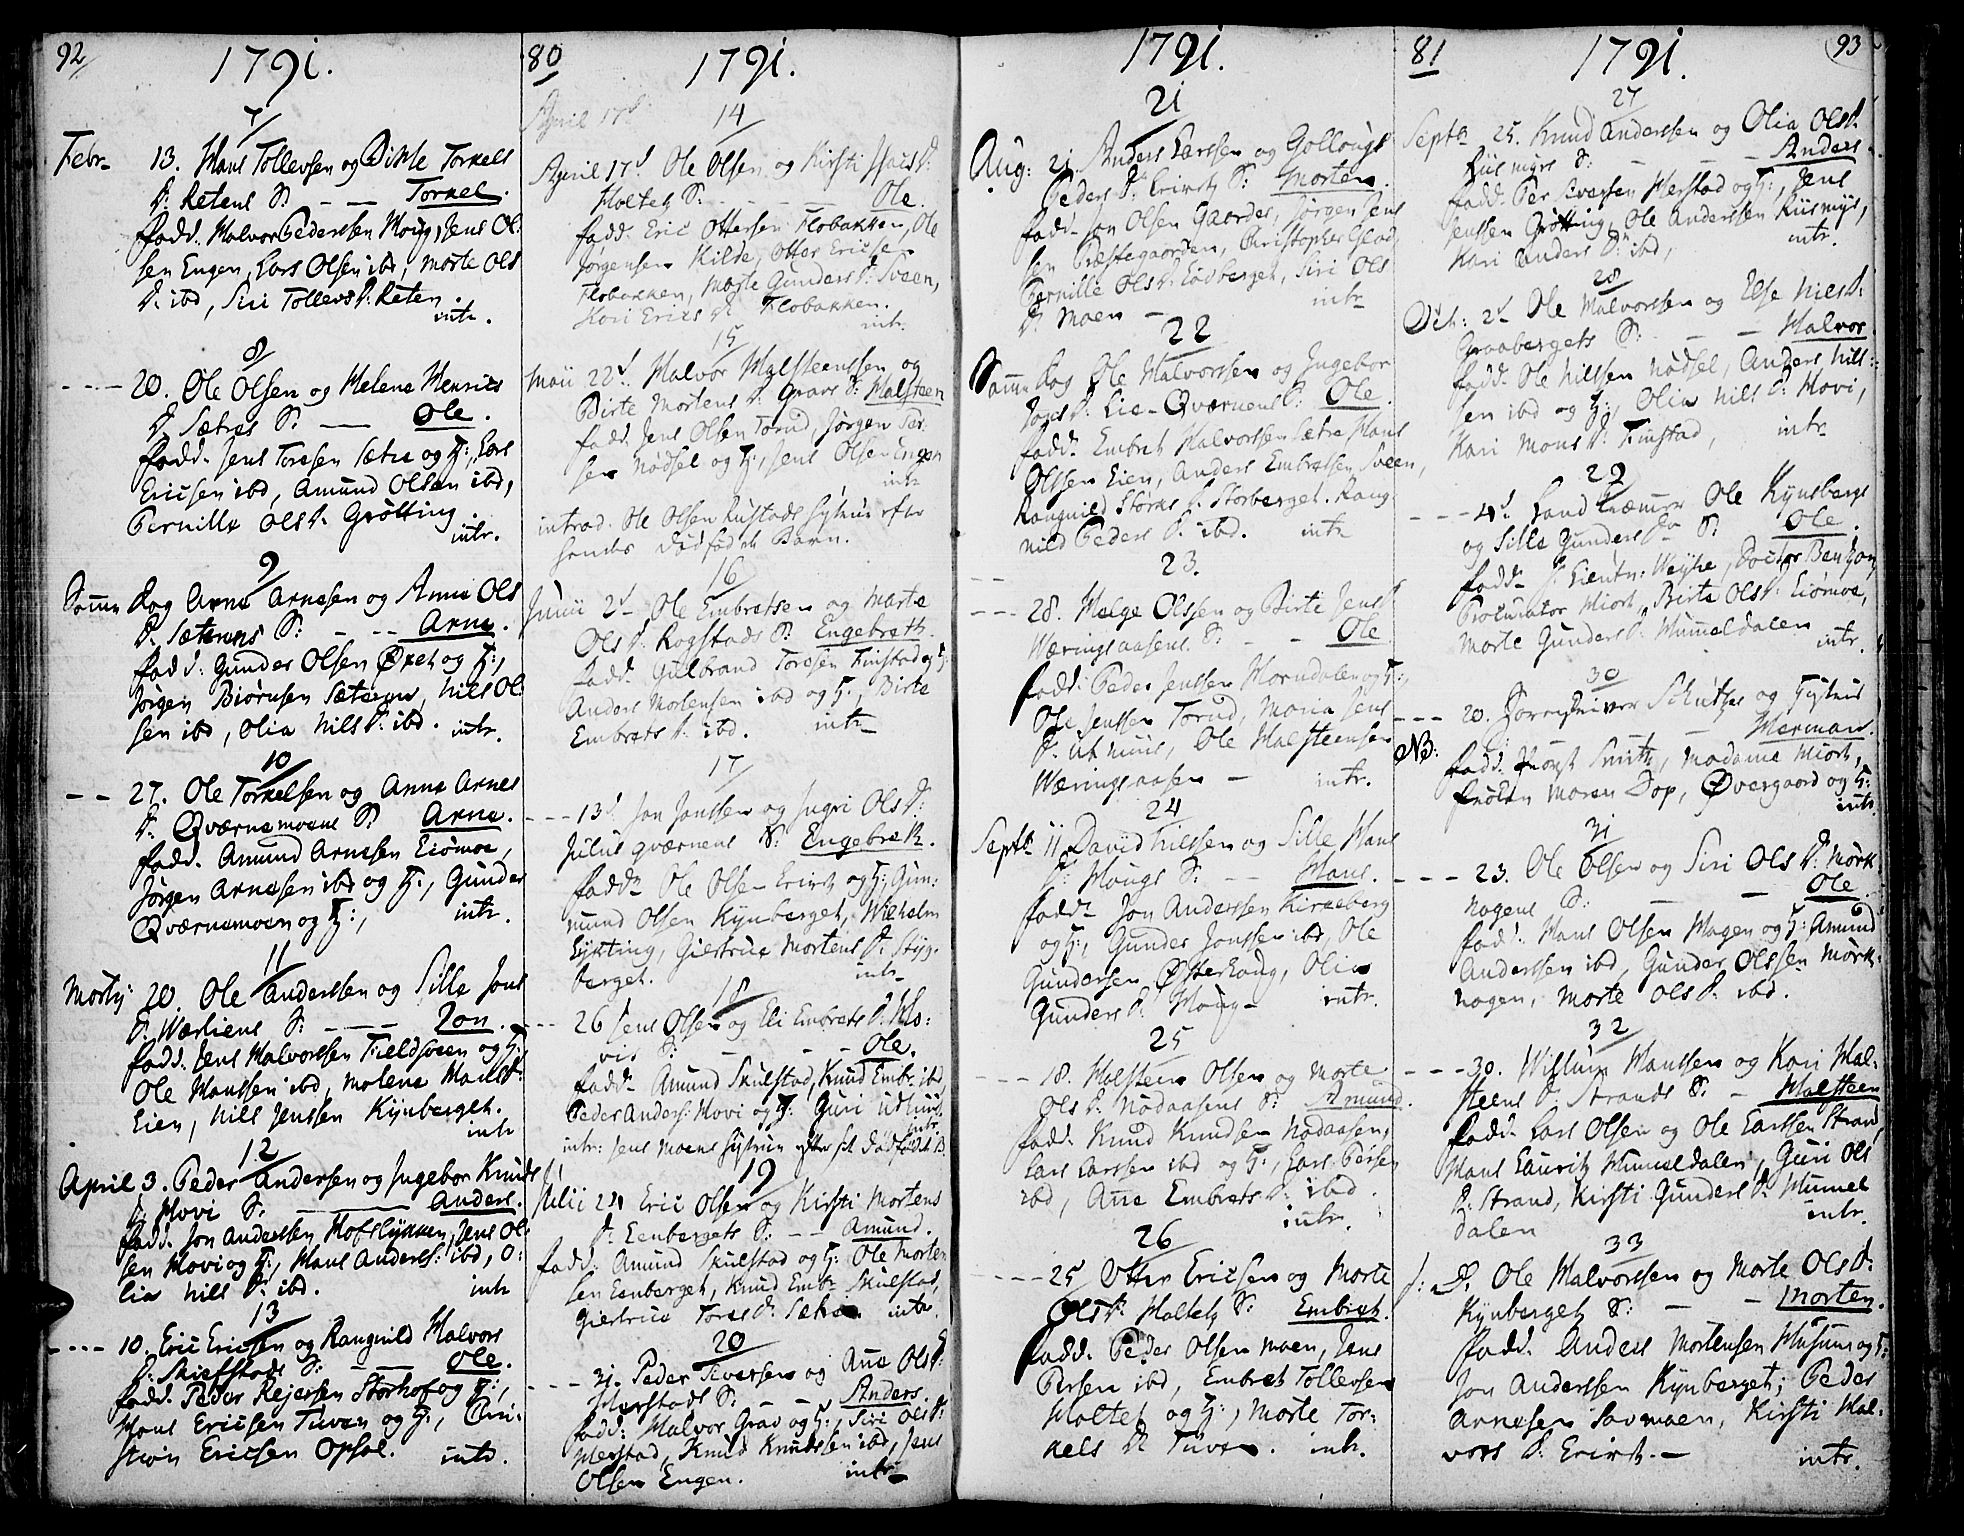 92
1791.
7
Febr. 13. Hans Tollevsen og Birte Torkels
D: Retens S: - - Torkel.
fadd. Halvor Pedersen Houg, Jens Ol:
sen Engen, Lars Olsen ibd, Morte Ols
D: ibd, Siri Tollevs D: Reten.
intr.
8
---- 20. Ole Olsen og Helena Henrics
D: Sætres S: -- Ole.
fadd. Jens Toresen Sætre og H:, Lars
Ericsen ibd, Amund Olsen ibd,
Pernille Ols D. Grötting.
intr.
9
Samme Dag Arne Arnesen og Anne Ols
D: Sæterens S: - -- Arne.
fadd: Gunder Olsen Øxet og H:,
Jörgen Biörnsen Sæteren, Nils Ol:
sen ibd, Olia Nils D: ibd. intr.
10
-- 27. Ole Torkelsen og Anna Arnes
D: Qværnemoens S: Arne.
fadd. Amund Arnesen Eiömoe,
Jörgen Arnesen ibd og H:, Gunder
Qværnemoen og H:, intr.
11
Martij 20. Ole Andersen og Sille Jons
D: Wærliens S: --- Jon.
fadd. Jens Halvorsen Fieldsveen og H:
Ole Hansen ibd, Malene Hans D:
Eien, Nils Jensen Kynberget.
intr
12
April 3. Peder Andersen og Ingebor Knuds
D: Hovi S: --- Anders.
fadd. Jon Andersen Hofslykken, Jens Ol:
sen Hovi og H:, Hans Anders S: ibd, O:
lia Nils D: ibd. intr
13
---- 10. Eric Ericsen og Rangnild Halvors
D: Skiefstads S: -- Ole.
fadd. Peder Rejersen Storhof og H:,
Hans Ericsen Tuven og H:, Chri:
stian Ericsen Opsal. intr.
80
1791.
April 17d:
14
April 17d Ole Olsen og Kirsti D:
Holtets S: ---- Ole.
fadd. Eric Ottersen Flobakken, Ole
Jörgensen Kilde, Otter Ericsen
Flobakken, Marte Gunders D: Sveen,
Kari Erics D: Flobakken.
intr.
15
Maii 22d. Halvor Halsteensen og
Birte Mortens D. Gravs S: Halsteen
fadd. Jens Olsen Torud, Jörgen Per:
sen Nödsel og H:, Jens Olsen Engen
intr
introd. Ole Olsen Rustads Hystrue efter
hendes dödfödde Barn.
16
Junii 2d Ole Embretsen og Marte
Ols D: Rogstads S: Engebreth.
fadd. Gulbrand Toresen Finstad og H:
Anders Mortensen ibd og H:, Birte
Embrets D: ibd. intr
17
---- 13d Jon Jonsen og Ingri Ols D:
Julus qværnens S: Engebreth.
fadd. Ole Olsen Erirets og H:, Gun:
mund Olsen Kynberget, Wilhelm
Lykting, Giertrue Mortens D: Styg:
berget. intr
18
--- 26 Jens Olsen og Eli Embrets D: Ho:
vis S: - - - Ole.
fadd. Amund Skulstad, Knud Emb: ibd,
Peder Anders: Hovi og H:, Guri Udhuus.
intr.
intr: Jens Moens Hystrue efter sit Dödfödde B.
19
Julii 24 Eric Olsen og Kirsti Mortens
D: Eenbergets S: -- Amund.
fadd. Amund Skulstad og H: Ole Morten
sen Eenberget, Knud Emb: Skulstad,
Giertrue Tores D: Sætre. intr
20
---- 31. Peder Iversen og Ane Ols D:
Herstads S: -- Anders.
fadd: Halvor Grav og H:, Siri Ols D:
Herstad, Knud Knudsen ibd, Jens
Olsen Engen. intr.
1791.
21
Aug: 21 Anders Larsen og Gollaug
Peders D: Erirets S: Morten.
fadd. Jon Olsen Gaarder, Jörgen Jens
sen Præstegaarden, Christopher Glad,
Pernille Ols D: Eidberget, Siri Ols
D: Moen - intr
22
Samme Dag Ole Halvorsen og Ingebor
Jons D: Lie-Qværnens S: Ole.
fadd. Embret Halvorsen Sætre, Hans
Olsen Eien, Anders Embretsen Sveen,
Rangnild Storks D: Storberget. Rang:
nild Peders D: ibd. intr
23.
--- 28. Helge Olsen og Birte Jens D:
Wæringsaasens S: - - Ole.
fadd: Peder Jensen Horndalen og H:,
Ole Jensen Torud, Maria Jens
D: Udhuus, Ole Halsteensen
Wæringsaasen - intr.
24
Septb: 11 David Nilsen og Sille Hans
D: Hougs S: -- Hans.
fadd. Jon Andersen Kirkeberg
og H:, Gunder Jonsen ibd, Ole
Gundersen Østerhaug, Olia
Gunders D: Houg- intr.
25
---- 18. Halsteen Olsen og Marte
Ols D: Nodaasens S: Amund.
fadd. Knud Knudsen Nodaasen,
Lars Larsen ibd og H:, Lars Persen
ibd, Ane Embrets D: ibd.
intr.
26
----- 25 Otter Ericsen og Morte
Ols D: Holtets S: Embret.
fadd. Peder Olsen Moen, Jens
Persen ibd, Embret Tollevsen
Holtet og H:, Morte Tor:
kels D: Tuven. intr.
81
1791.
93
27
Septb: 25. Knud Andersen og Olia Ols D:
Riismyrs S: - - - Anders
fadd. Per Iversen Herstad og H:, Jens
Jensen Grötting, Ole Andersen Riismyr,
Kari Anders D: ibd, intr.
28
Oct: 2d Ole Halvorsen og Else Nils D:
Graabergets S: - - Halvor.
fadd. Ole Nilsen Nödsel, Anders Nils:
sen ibd og H:, Olia Nils D: Hovi,
Kari Mons D: Finstad, intr
29
--- 4d. Land Kræmer Ole Kynsberg
og Sille Gunders D: S: Ole.
fadd. Hr Lieutn: Weyhe, Doctor Bentzon,
Procurator Hiort, Birte Ols D: Eiömoe,
Morte Gunders D: Hummeldalen
intr.
30
--- 20. Sorenskriver Schützer og Hystrues
- Herman.
NB: fadd. Provst Smith, Madame Hiort,
fröken Maren Dop, Øvergaard og H:
intr
31
---- 23. Ole Olsen og Siri Ols D: Mörk:
hagens S: - - Ole
fad:. Hans Olsen Hagen og H: Amund
Andersen ibd, Gunder Olsen Mörk:
hagen, Morte Ols D: ibd.
32
---- 30. Wistum Hansen og Kari Hal:
steens D: Strands S: - Halsteen
fadd. Lars Olsen og Ole Larsen Strand,
Hans Lauritz Hummeldalen, Guri Ols
D: Strand, Kirsti Gunders D: Hummel
dalen intr.
33
s: D. Ole Halvorsen og Morte Ols D:
Kynbergets S: - - Morten.
fadd. Anders Mortensen Husum og H:
Jon Andersen Kynberget, Peder
Arnesen Savmoen, Kirsti Hal:
vors D: Erirets.- intr.